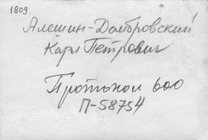 1809.
Алешин-Домбровский
Карл Петрович
Протокол 600
П-58754